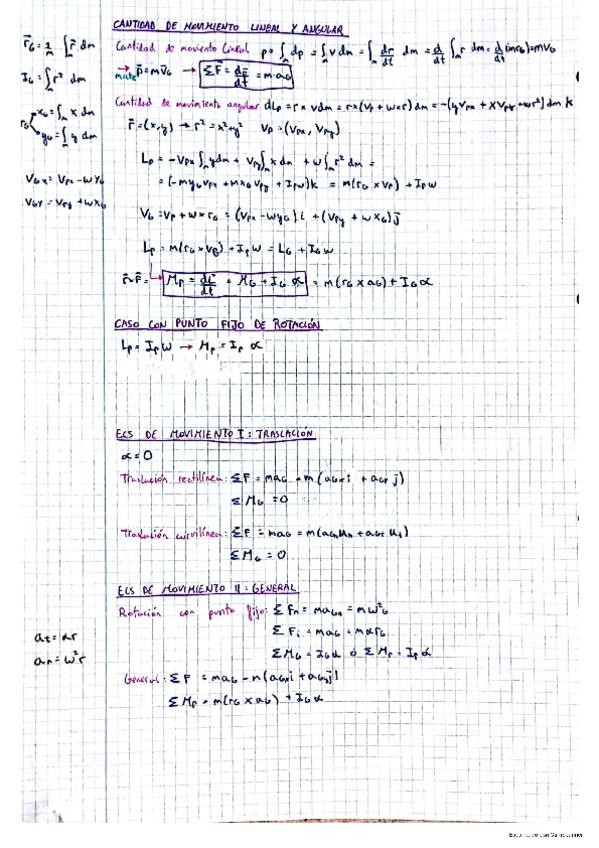 CANTIDAD DE MOVIMIENTO LINEAL Y ANGULAR
r⃗G = 1/m ∫ r⃗ dm
Cantidad de moviento lineal p = ∫m dp = ∫ v dm = ∫ dr/dt dm = d/dt ∫m r dm = d/dt (m rG) = m vG
IG = ∫m r² dm
→ p⃗ = m v⃗G → ΣF⃗ = dp⃗/dt = m·aG
Cantidad de movimiento angular dLp = r × v dm = r × (vp + w × r) dm = -(y vpx + x vpy + w r²) dm k
rG xG = ∫m x dm
yG = ∫m y dm
r⃗ = (x,y) → r² = x² + y² vp = (vpx, vpy)
Lp = -vpx ∫m y dm + vpy ∫m x dm + w ∫m r² dm =
VGx = Vpx - w yG
= (-m yG vpx + m xG vpy + Ip w) k = m(rG × vp) + Ip w
VGy = Vpy + w xG
VG = vp + w × rG = (vpx - w yG) i + (vpy + w xG) j
Lp = m(rG × vG) + IG w = LG + IG w
r⃗ × F⃗ = Mp = dL⃗/dt = MG + IG α = m(rG × aG) + IG α
CASO CON PUNTO FIJO DE ROTACIÓN
Lp = Ip w → Mp = Ip α
ECS DE MOVIMIENTO I: TRASLACIÓN
α = 0
Traslación rectilínea: ΣF = m aG = m (aGx i + aGy j)
ΣMG = 0
Traslación curvilínea: ΣF = m aG = m(aGn un + aGt ut)
ΣMG = 0
ECS DE MOVIMIENTO II: GENERAL
Rotación con punto fijo: ΣFn = m aGn = m w² rG
at = αr
ΣFt = m aG = m α rG
an = w² r
ΣMG = IG α ó ΣMp = Ip α
General: ΣF = m aG = m(aGx i + aGy j)
ΣMp = m(rG × aG) + IG α